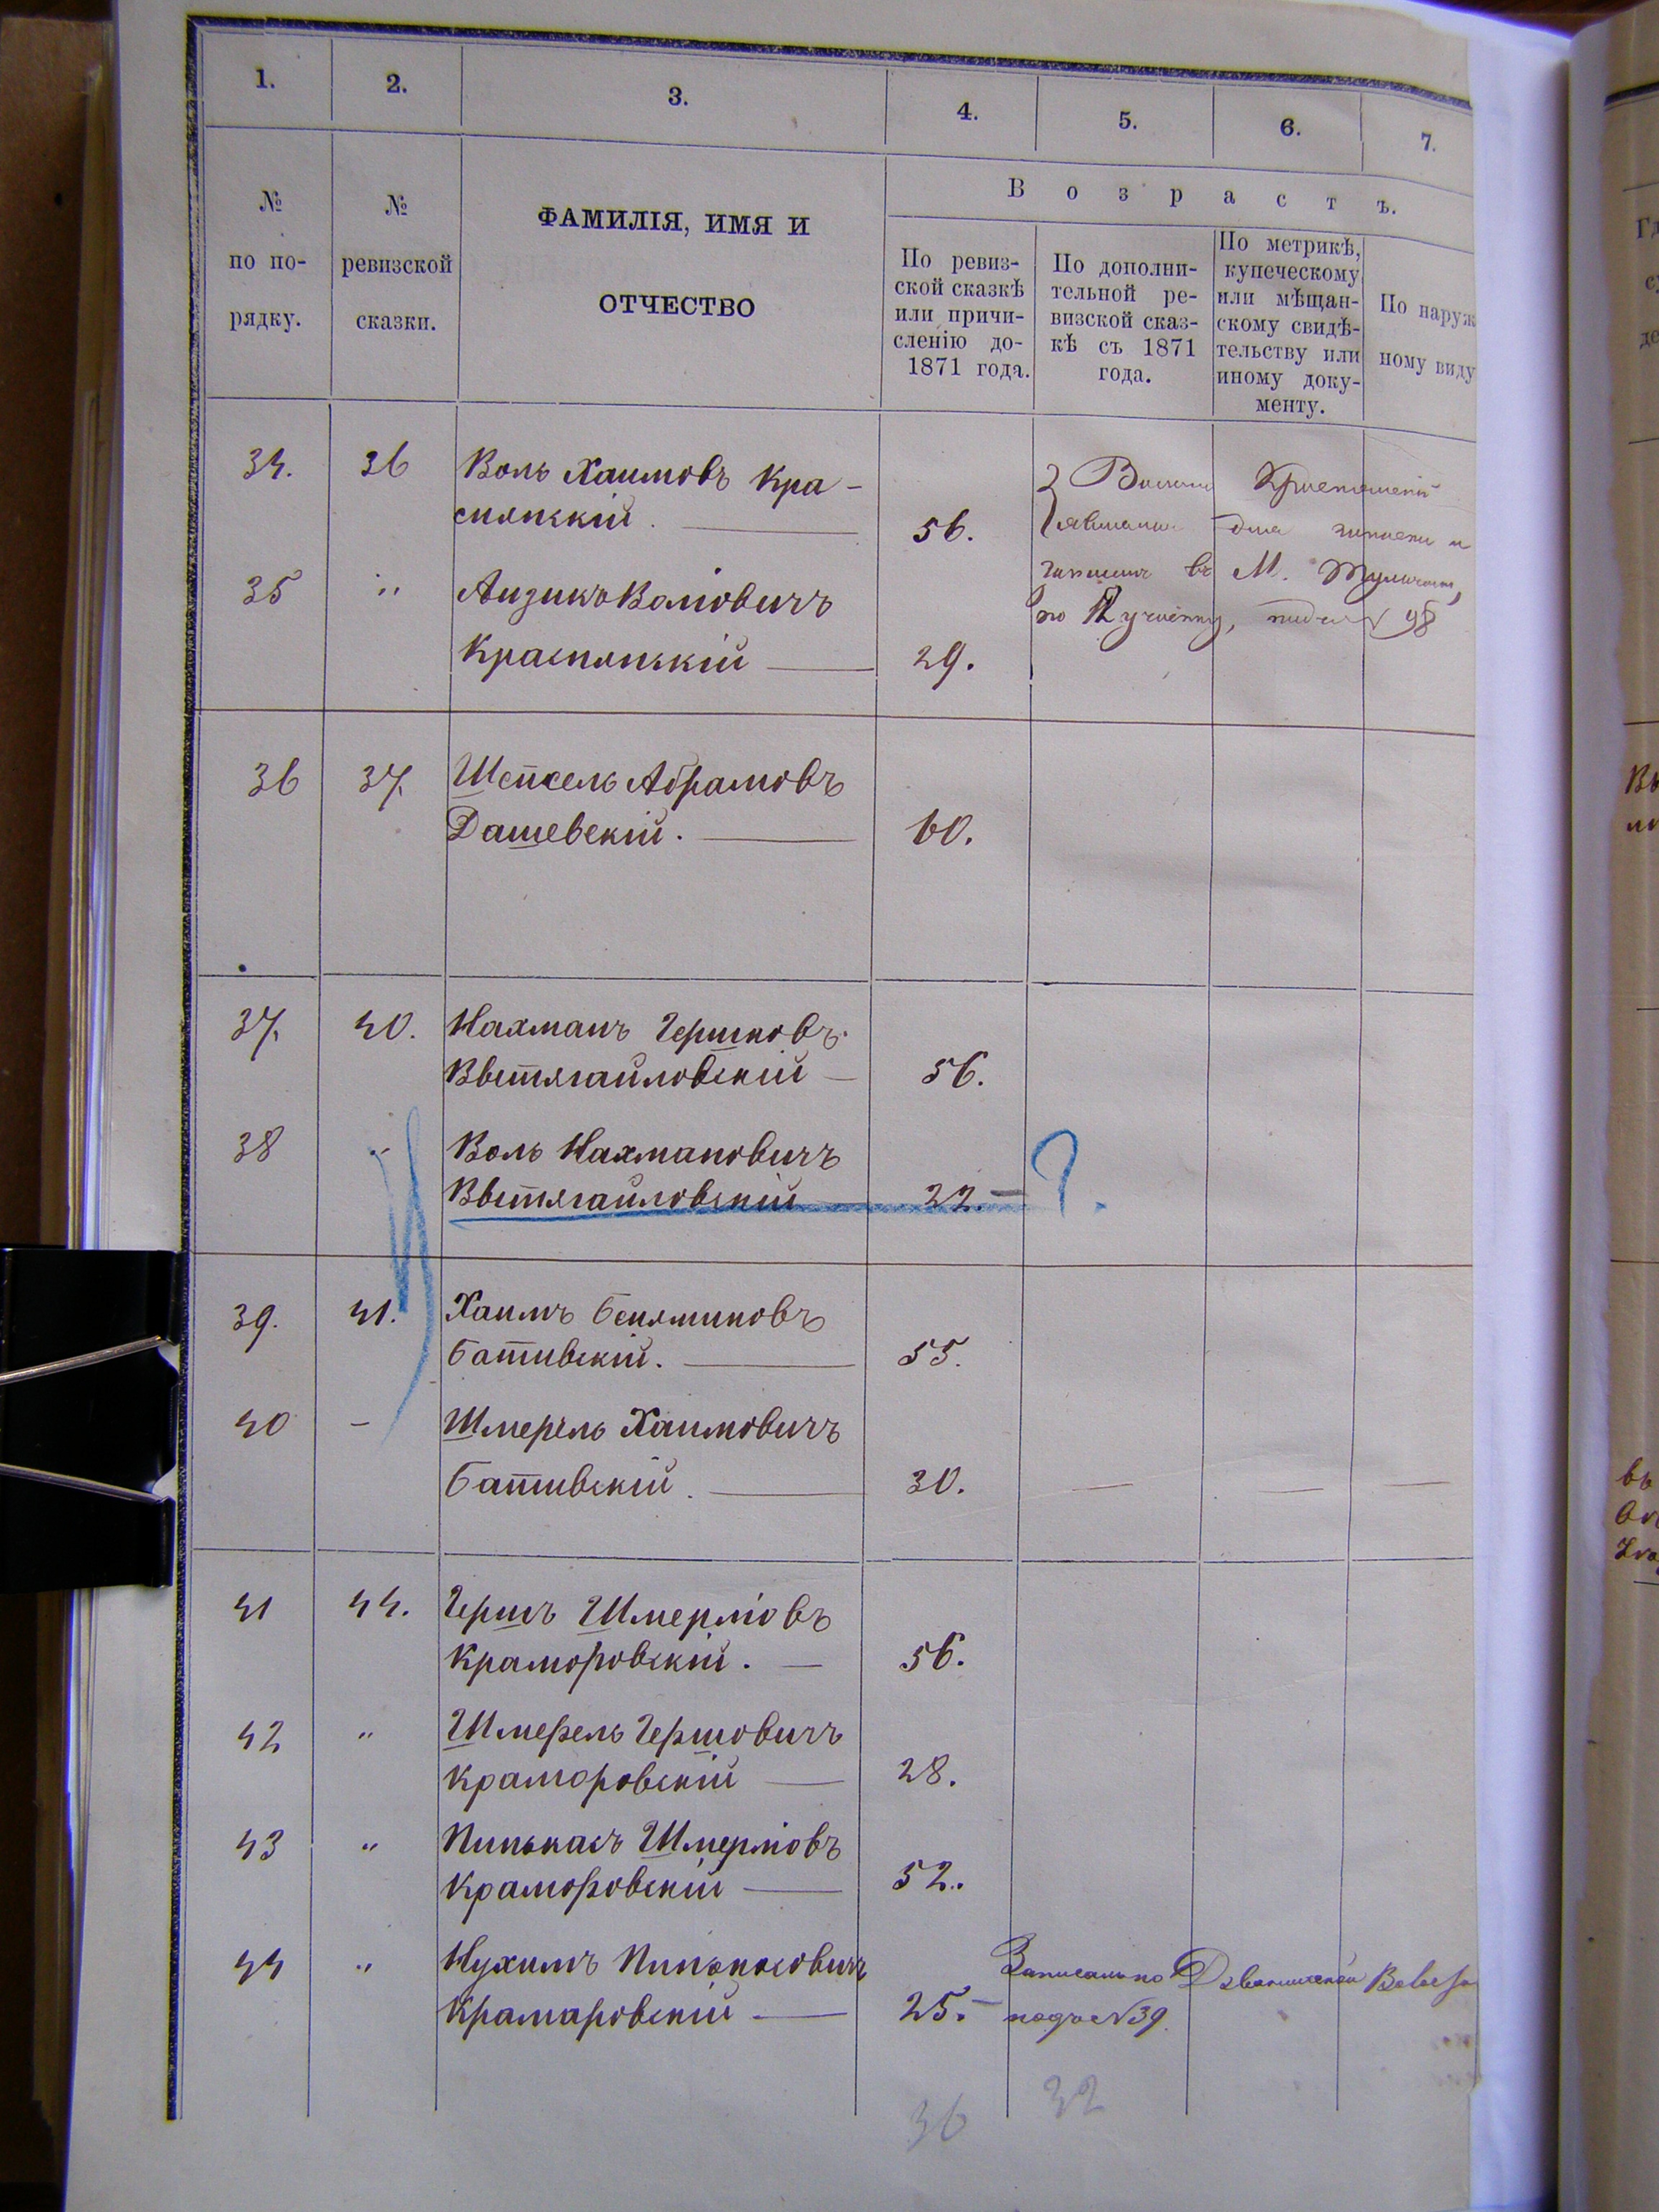 1. 2. 3. 4. 5. 6. 7.
№ по по-рядку.
№ ревизской сказки.
ФАМИЛІЯ, ИМЯ И
ОТЧЕСТВО
Возрастъ.
По ревиз-
ской сказкѣ
или причи-
сленію до-
1871 года.
По дополни-
тельной ре-
визской сказ-
кѣ съ 1871
года.
По метрикѣ,
купеческому
или мѣщан-
скому свидѣ-
тельству или
иному доку-
менту.
По наруж
ному виду
34. 36 Воль Хаимовъ Кра-
снянскій. 56.
35 " Аизикъ Воліовичъ
Краснянскій 29.
въ М.
36 37. Шепсель Абрамовъ
Дашевскій. 60.
37. 40. Нахманъ Гершковъ
Вветягайловскій 56.
38 " Воль Нахмановичъ
Вветягайловскій 22. ?.
39. 41. Хаимъ Беняминовъ
Бативскій. 55.
40 - Шмерель Хаимовичъ
Бативскій. 30.
41 44. Гершъ Шмерліовъ
Краморовскій. 56.
42 " Шмерель Гершовичъ
Краморовскій 28.
43 " Пинькасъ Шмерліовъ
Краморовскій 52.
44 " Нухимъ Пинькасовичъ
Крамаровскій 25.
№39.
36 32